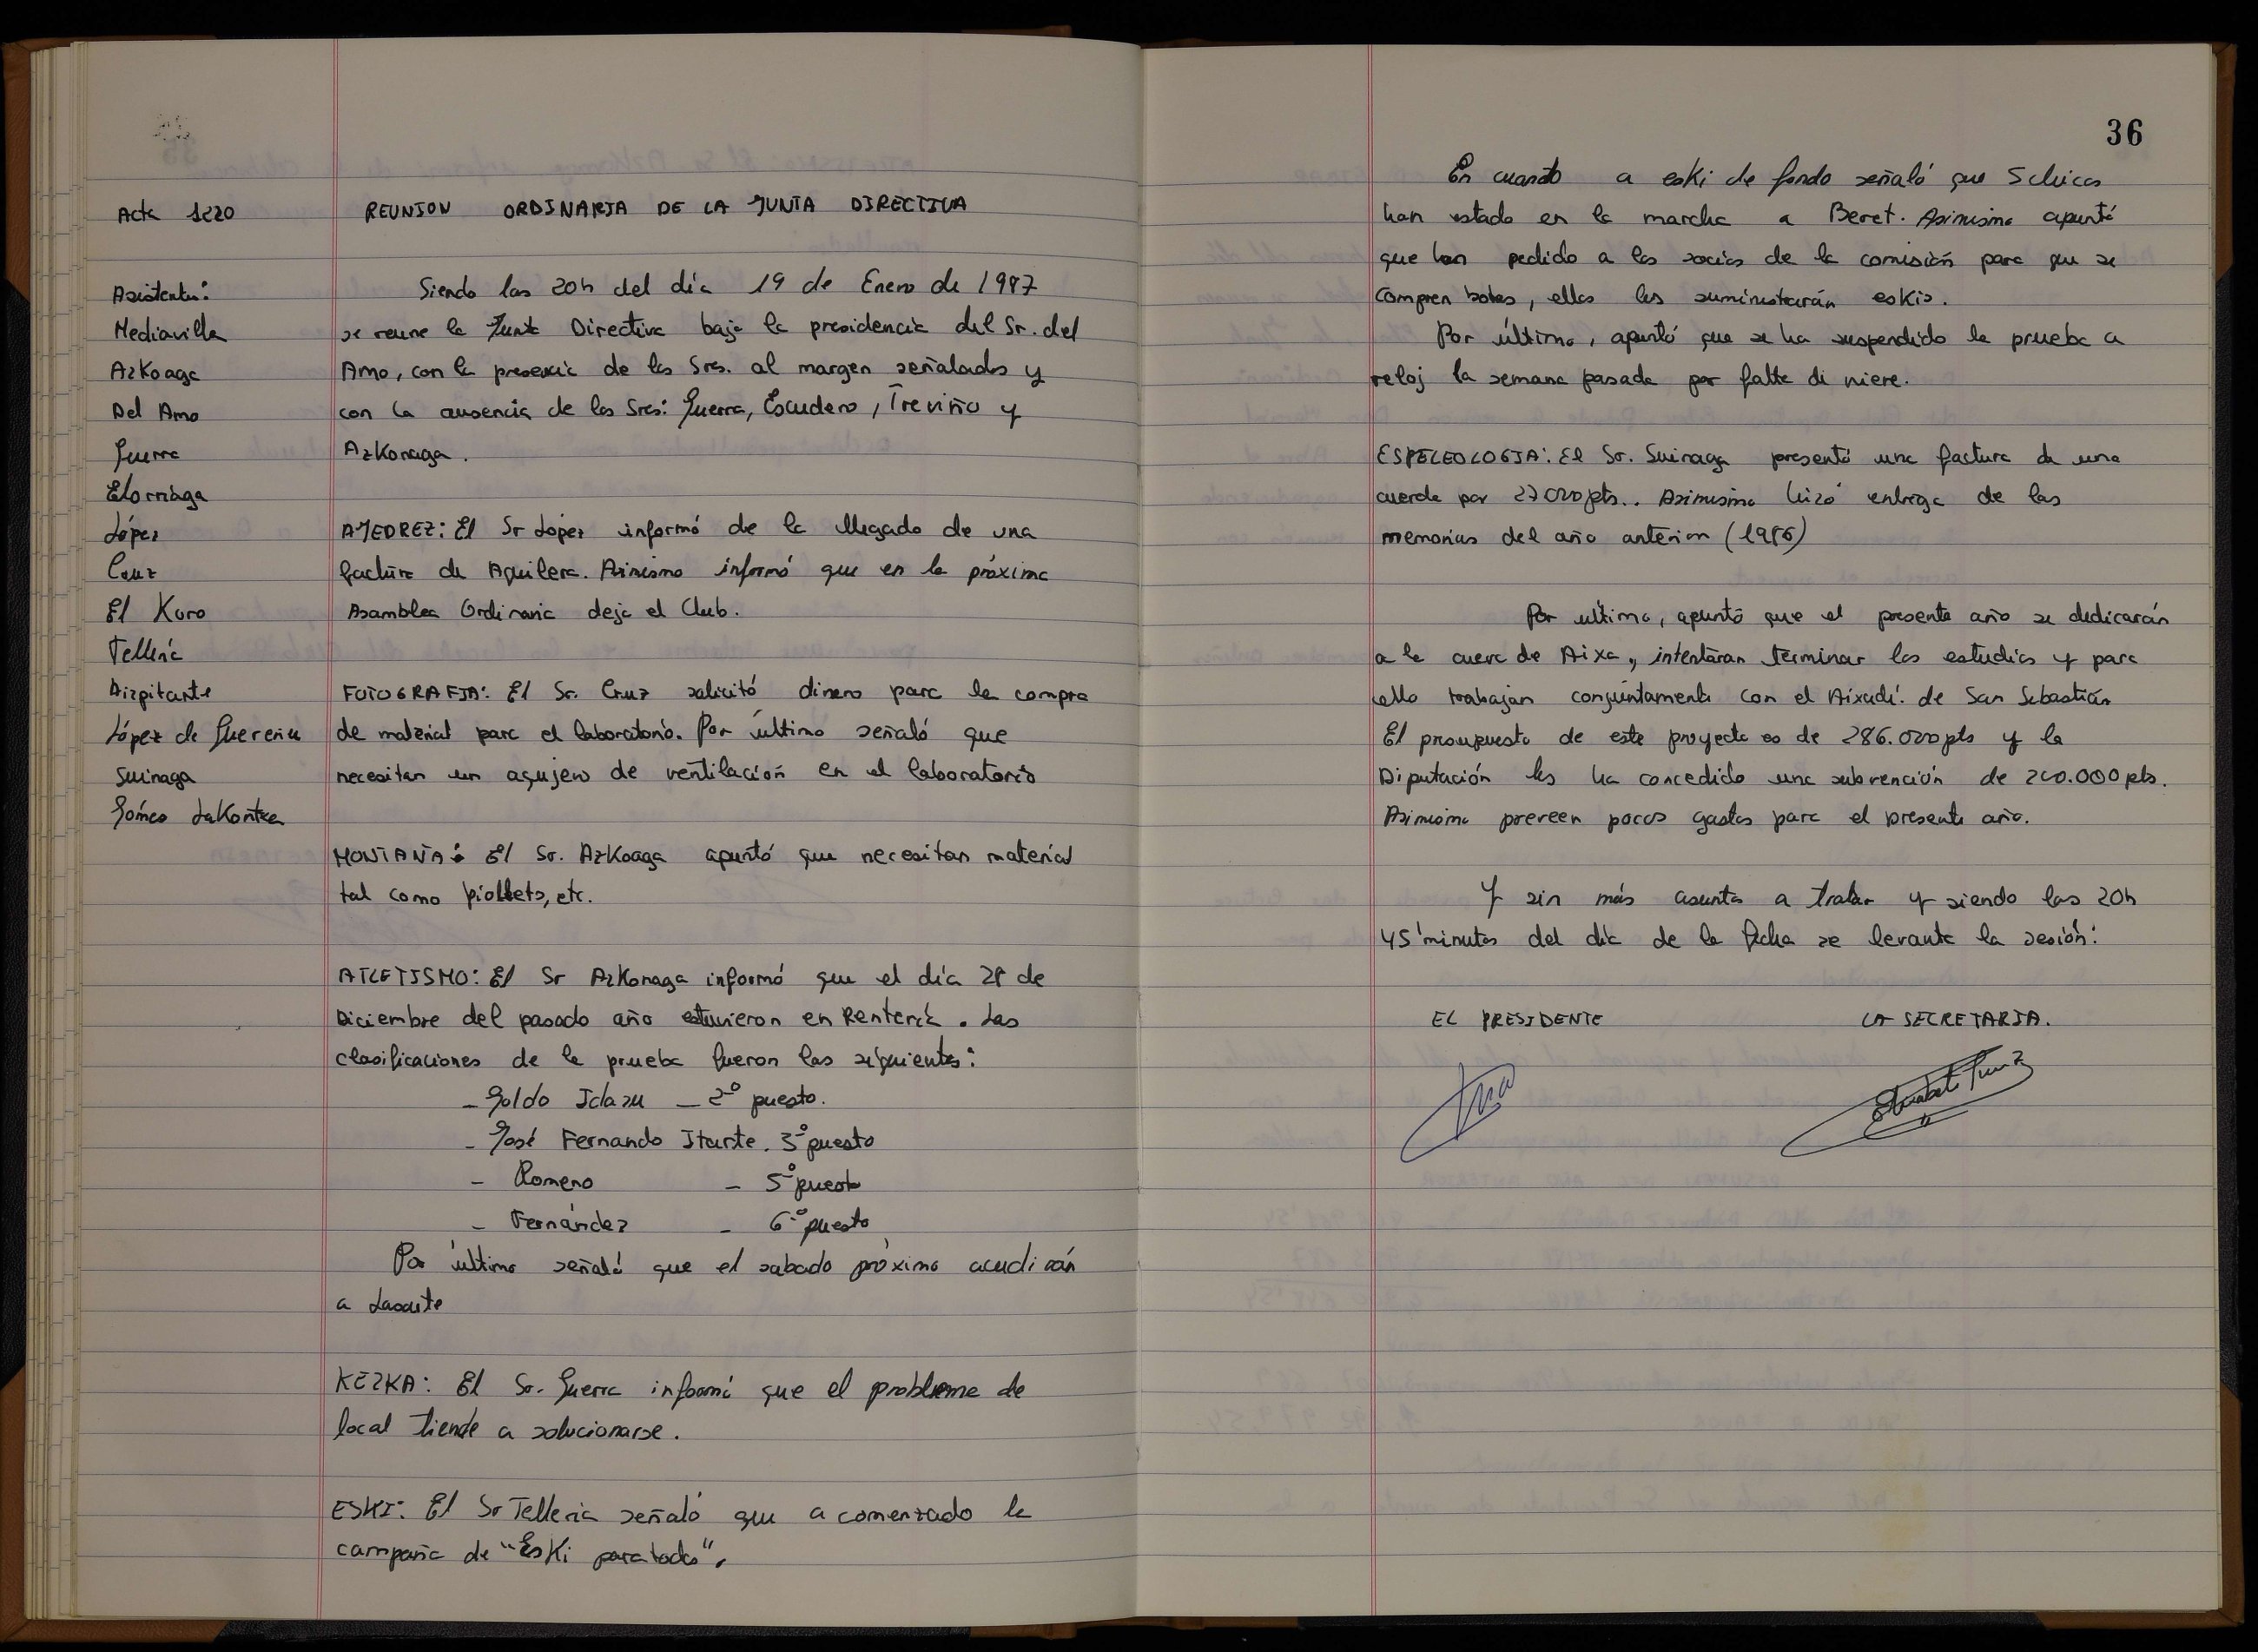 Acta 1220
REUNION ORDINARIA DE LA JUNTA DIRECTIVA
Asistentes:
Mediavilla
Azkoaga
Del Amo
Guerra
Elorriaga
López
Cruz
El Koro
Telleria
Aizpitarte
López de Guereñu
Suinaga
Gómez Lakontxa
Siendo las 20h del día 19 de Enero de 1987
se reune la Junta Directiva bajo la presidencia del Sr. del
Amo, con la presencia de los Sres. al margen señalados y
con la ausencia de los Sres: Guerra, Escudero, Treviño y
Azkonaga.
AJEDREZ: El Sr López informó de la llegado de una
factura de Aguilera. Asimismo informó que en la próxima
Asamblea Ordinaria deja el Club.
FOTOGRAFIA: El Sr. Cruz solicitó dinero para la compra
de material para el laboratorio. Por último señaló que
necesitan un agujero de ventilación en el laboratorio
MONTAÑA: El Sr. Azkoaga apuntó que necesitan material
tal como piollets, etc.
ATLETISMO: El Sr Azkonaga informó que el día 28 de
Diciembre del pasado año estuvieron en Rentería. Las
clasificaciones de la prueba fueron las siguientes:
- 2º puesto.
- José Fernando Iturte. 3º puesto
- Romero - 5º puesto
- Fernández - 6º puesto
Por último señaló que el sabado próximo acudirán
a Lasarte
KEZKA: El Sr. Guerra informó que el problema de
local tiende a solucionarse.
ESKI: El Sr Telleria señaló que a comenzado la
campaña de "Eski para todos".
36
En cuanto a eski de fondo señaló que 5 chicos
han estado en la marcha a Beret. Asimismo apuntó
que han pedido a los socios de la comisión para que se
compren botas, ellos les suministrarán eskis.
Por último, apuntó que se ha suspendido la prueba a
reloj la semana pasada por falta di nieve.
ESPELEOLOGIA: El Sr. Suinaga presentó una factura de una
cuerda por 27.000 pts.. Asimismo hizo entrega de las
memorias del año anterior (1986)
Por ultimo, apuntó que el presente año se dedicarán
a la cueva de Aixa, intentaran terminar los estudios y para
ello trabajan conjuntamente con el de San Sebastián
El presupuesto de este proyecto es de 286.000 pts y la
Diputación les ha concedido una subvención de 200.000 pts.
Asimismo preveen pocos gastos para el presente año.
Y sin más asuntos a tratar y siendo las 20h
45' minutos del día de la fecha se levanta la sesión:
EL PRESIDENTE LA SECRETARIA.